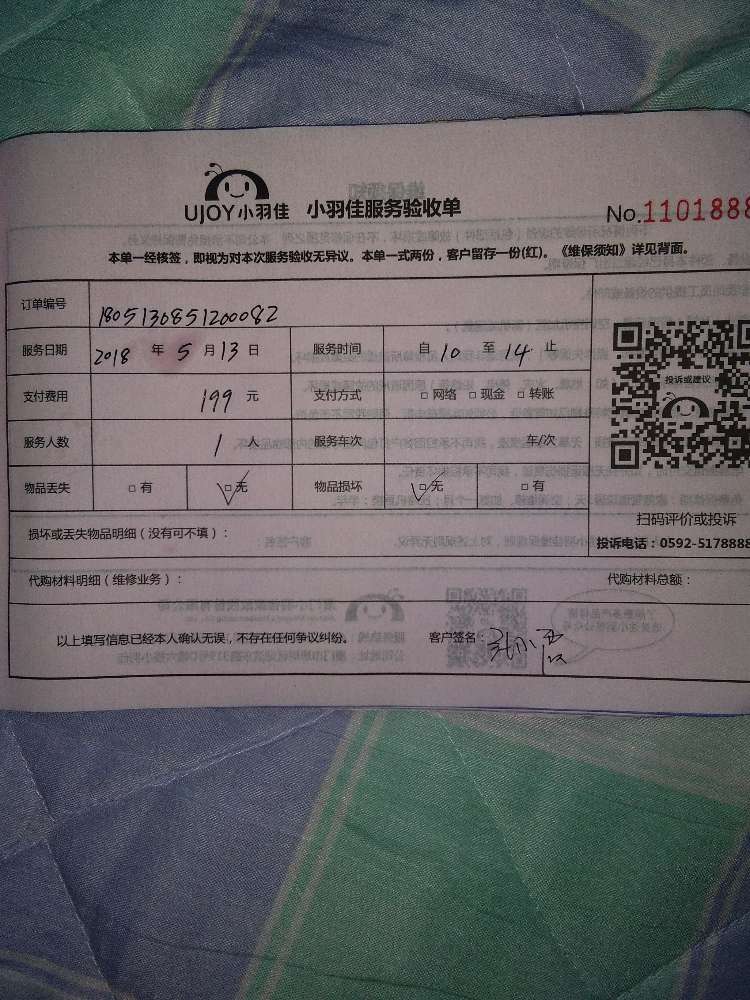 UJOY小羽佳 小羽佳服务验收单
No.1101888
本单一经核签，即视为对本次服务验收无异议。本单一式两份，客户留存一份(红)。《维保须知》详见背面。
订单编号 1805130851200082
服务日期 2018 年 5 月 13 日 服务时间 自 10 至 14 止
支付费用 199 元 支付方式 □ 网络 □ 现金 □ 转账
投诉或建议
服务人数 1 人 服务车次 车/次
物品丢失 □ 有 □ 无 物品损坏 □ 无 □ 有
扫码评价或投诉
损坏或丢失物品明细（没有可不填）：
投诉电话：0592-5178888
代购材料明细（维修业务）： 代购材料总额：
以上填写信息已经本人确认无误，不存在任何争议纠纷。 客户签名：